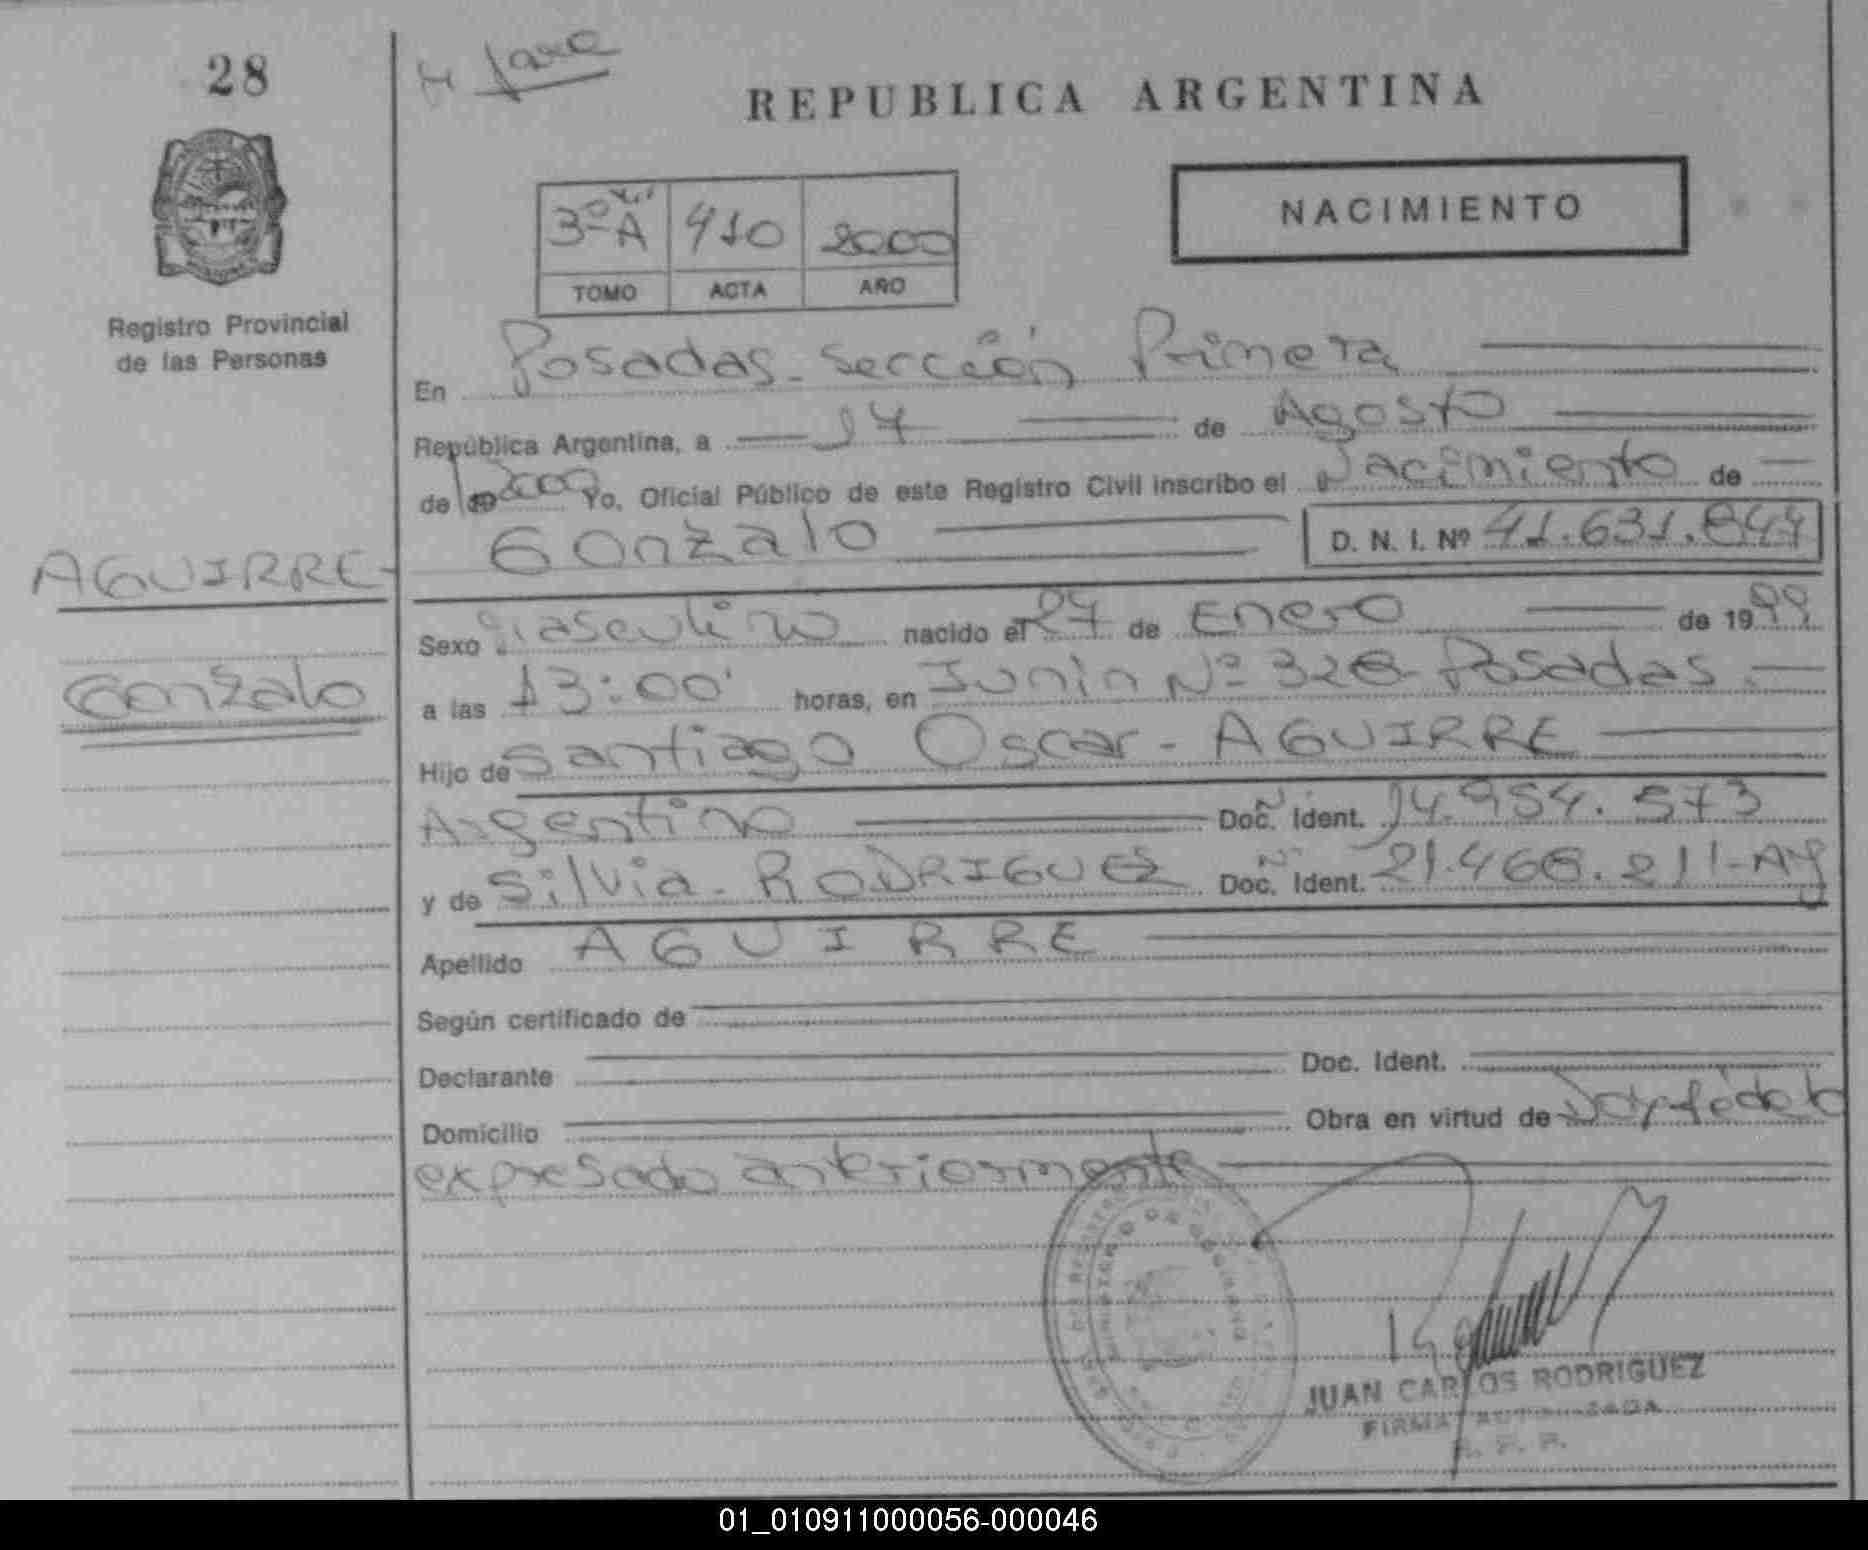 28
REPUBLICA ARGENTINA
3º A 410 2000
TOMO ACTA AÑO
NACIMIENTO
Registro Provincial
de las Personas
En Posadas - Sección Primera
República Argentina, a 17 de Agosto
de 2000 Yo, Oficial Público de este Registro Civil inscribo el Nacimiento de
Gonzalo D. N. I. Nº 41.631.844
AGUIRRE-
Gonzalo
Sexo Masculino nacido el 27 de Enero de 1999
a las 13:00' horas, en Junin Nº 328 - Posadas.
Hijo de Santiago Oscar - AGUIRRE
Argentino Doc. Ident. 14.954.573
y de Silvia - RODRIGUEZ Doc. Ident. 21.468.211-Ag
Apellido AGUIRRE
Según certificado de
Declarante Doc. Ident.
Domicilio Obra en virtud de
expresado anteriormente
MINISTERIO DE GOBIERNO
JUAN CARLOS RODRIGUEZ
FIRMA AUTORIZADA
R. P. P.
01_010911000056-000046